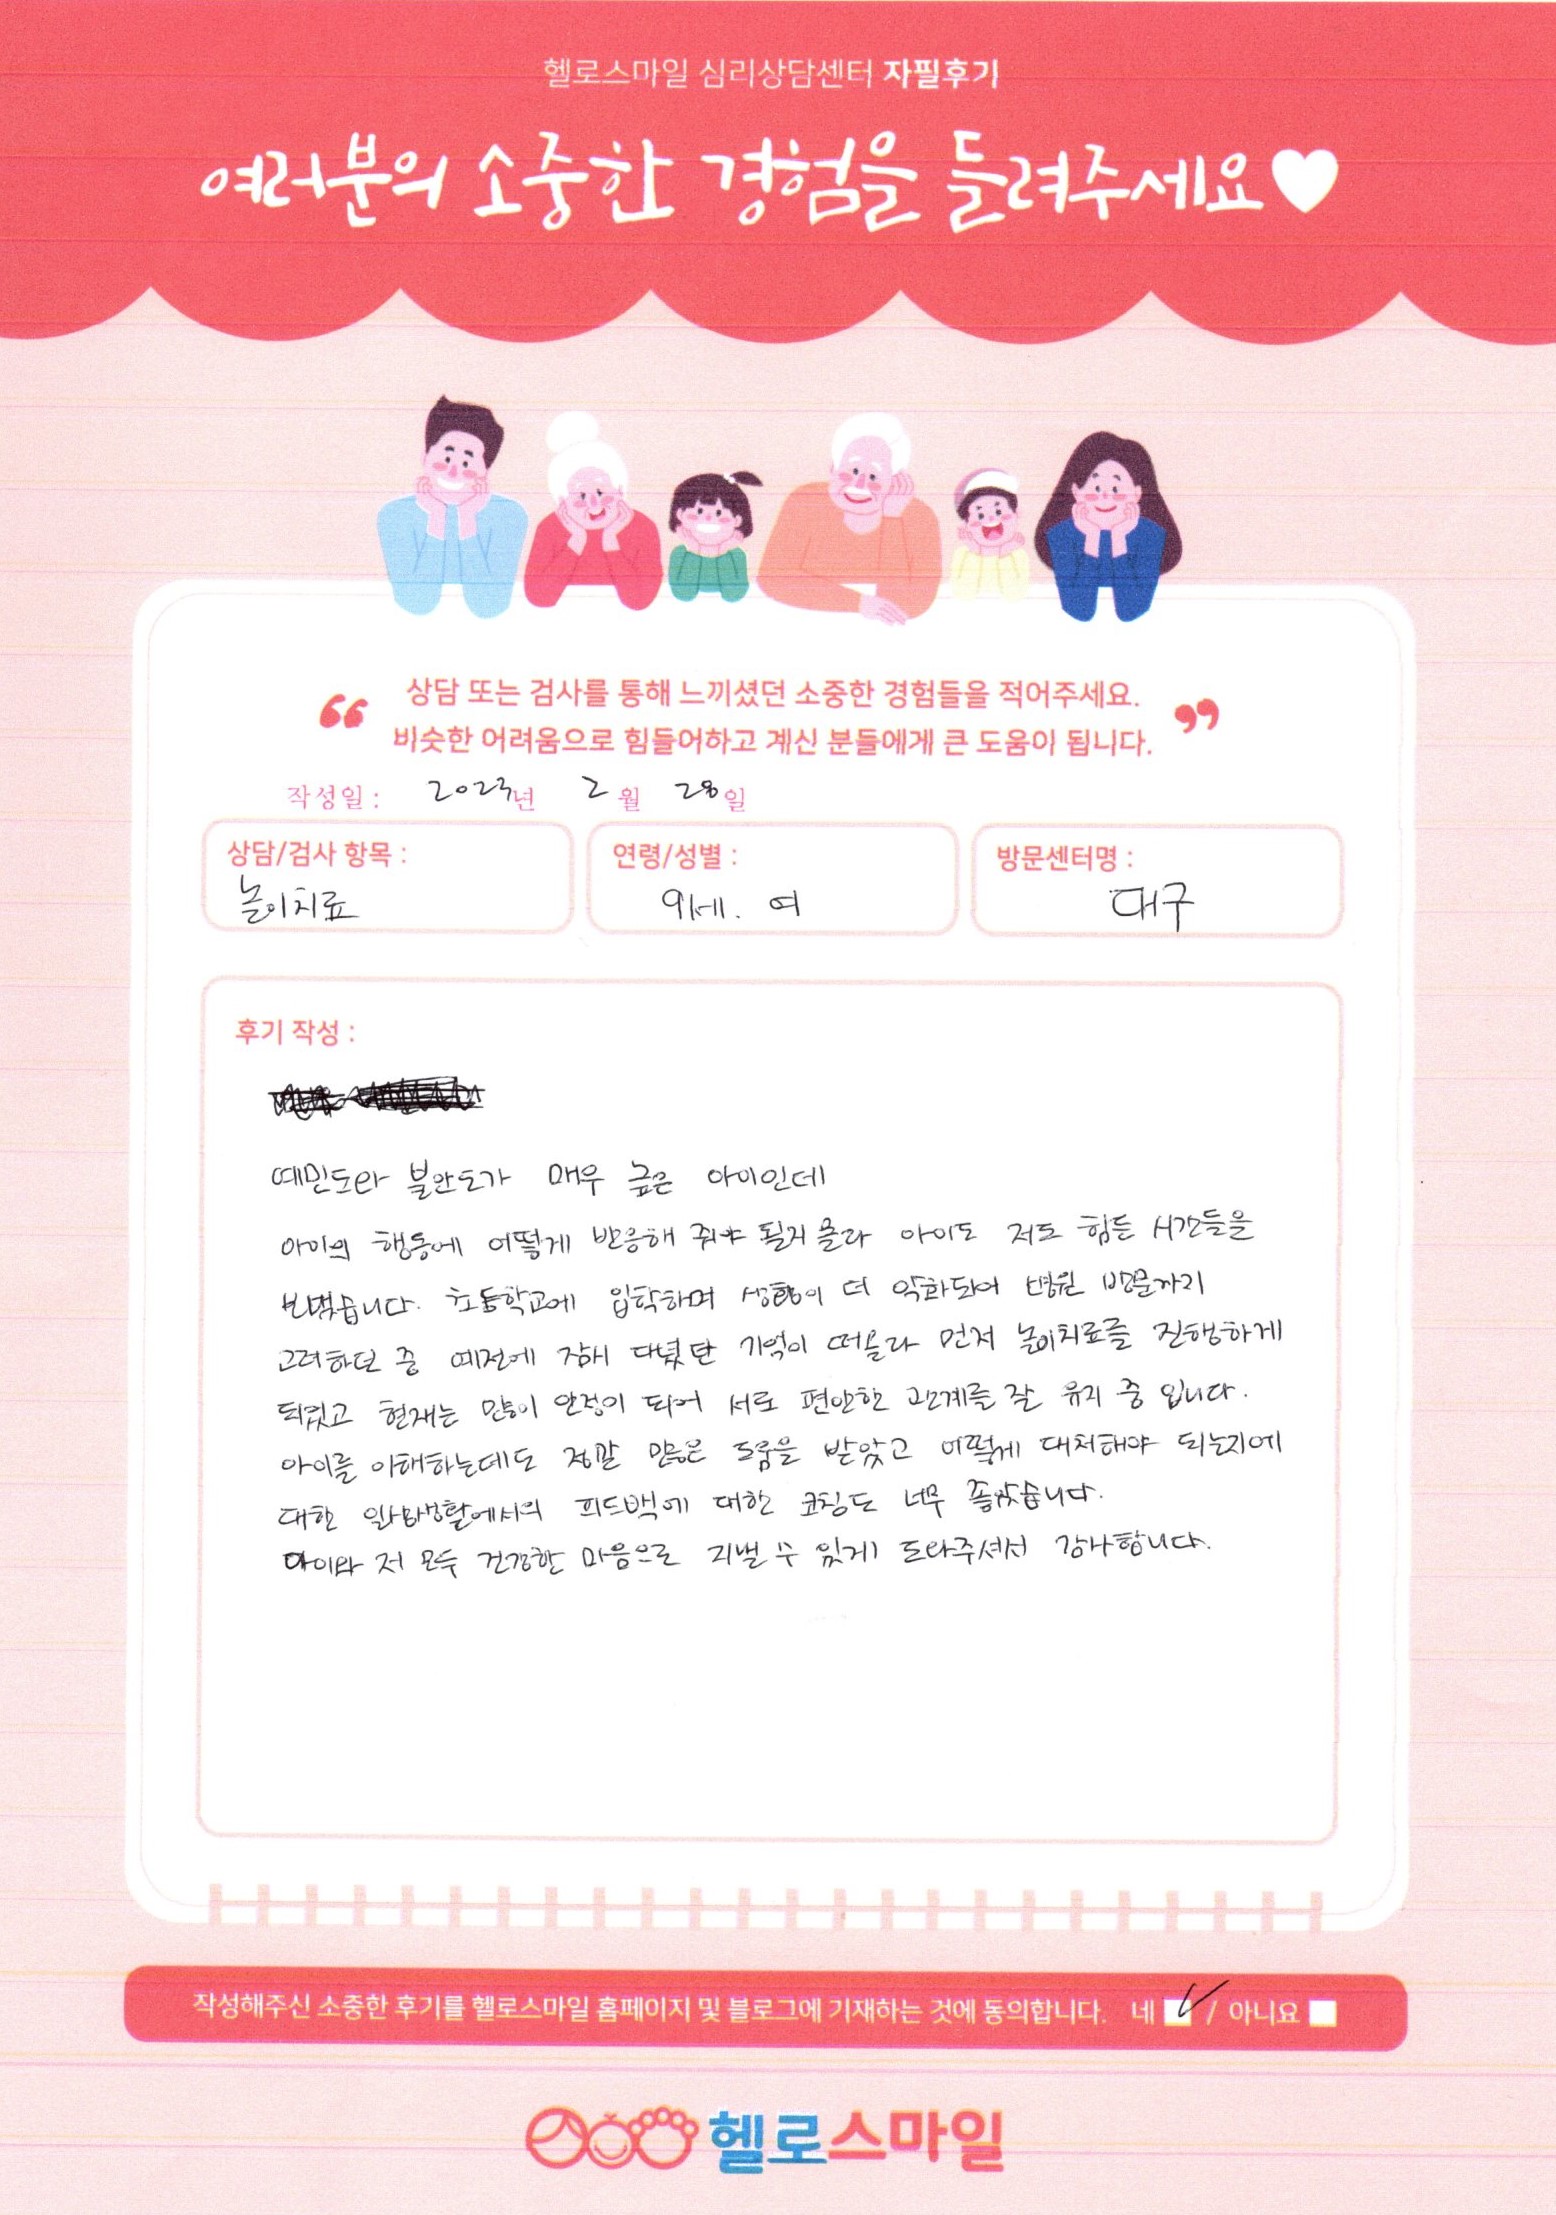 헬로스마일 심리상담센터 자필후기
여러분의 소중한 경험을 들려주세요
상담 또는 검사를 통해 느끼셨던 소중한 경험들을 적어주세요.
비슷한 어려움으로 힘들어하고 계신 분들에게 큰 도움이 됩니다.
작성일 : 2023년 2월 28일
상담/검사 항목 :
놀이치료
연령/성별 :
9세. 여
방문센터명 :
대구
후기 작성 :
예민도와 불안도가 매우 높은 아이인데
아이의 행동에 어떻게 반응해 줘야 될지 몰라 아이도 저도 힘든 시간들을
보냈습니다. 초등학교에 입학하며 상황이 더 악화되어 병원 방문까지
고려하던 중 예전에 잠시 다녔던 기억이 떠올라 먼저 놀이치료를 진행하게
되었고 현재는 많이 안정이 되어 서로 편안한 관계를 잘 유지 중 입니다.
아이를 이해하는데도 정말 많은 도움을 받았고 어떻게 대처해야 되는지에
대한 일상생활에서의 피드백에 대한 코칭도 너무 좋았습니다.
아이와 저 모두 건강한 마음으로 지낼 수 있게 도와주셔서 감사합니다.
작성해주신 소중한 후기를 헬로스마일 홈페이지 및 블로그에 기재하는 것에 동의합니다. 네 / 아니요
헬로스마일